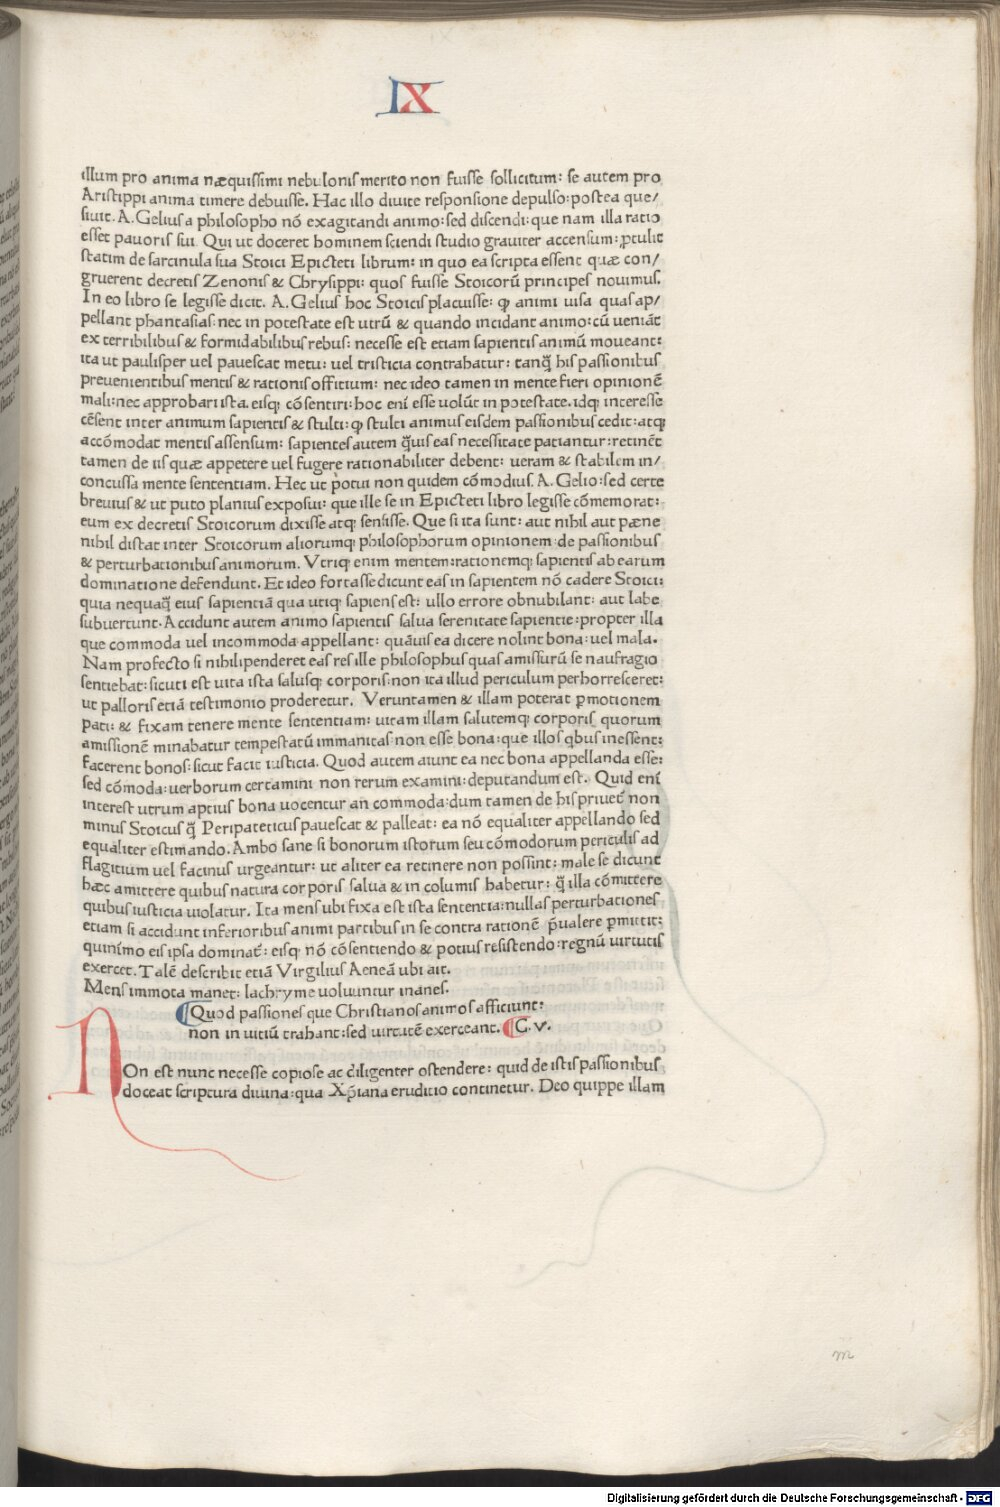 IX
illum pro anima næquissimi nebulonis merito non fuisse sollicitum: se autem pro
Aristippi anima timere debuisse. Hac illo divite responsione depulso: postea que/
siuit. A. Gelius a philosopho nō exagitandi animo: sed discendi: que nam illa ratio
esset pavoris sui. Qui ut doceret hominem sciendi studio graviter accensum: ꝓtulit
statim de sarcinula sua Stoici Epicteti librum: in quo ea scripta essent quæ con/
gruerent decretis Zenonis & Chrysippi: quos fuisse Stoicorū principes novimus.
In eo libro se legisse dicit. A. Gelius hoc Stoicis placuisse: ꝙ animi uisa quas ap/
pellant phantasias: nec in potestate est utrū & quando incidant animo: cū veniāt
ex terribilibus & formidabilibus rebus: necesse est etiam sapientis animū moueant:
ita ut paulisper vel pavescat metu: vel tristicia contrahatur: tanꝗ̄ his passionibus
prevenientibus mentis & rationis offitium: nec ideo tamen in mente fieri opinionē
mali: nec approbari ista. eisꝗ cōsentiri: hoc eni esse volūt in potestate. idꝗ interesse
cēsent inter animum sapientis & stulti: ꝙ stulti animus eisdem passionibus cedit: atꝗ
accōmodat mentis assensum: sapientes autem ꝗ̄uis eas necessitate patiantur: retinēt
tamen de iis quæ appetere vel fugere rationabiliter debent: veram & stabilem in/
concussa mente sententiam. Hec ut potui non quidem cōmodius. A. Gelio: sed certe
brevius & ut puto planius exposui: que ille se in Epicteti libro legisse cōmemorat:
eum ex decretis Stoicorum dixisse atꝗ sensisse. Que si ita sunt: aut nihil aut pæne
nihil distat inter Stoicorum aliorumꝗ philosophorum opinionem de passionibus
& perturbationibus animorum. Vtriꝗ enim mentem: rationemꝗ sapientis ab earum
dominatione defendunt. Et ideo fortasse dicunt eas in sapientem nō cadere Stoici:
quia nequaꝗ̄ eius sapientiā qua utiꝗ sapiens est: ullo errore obnubilant: aut labe
subuertunt. Accidunt autem animo sapientis salua serenitate sapientie: propter illa
que commoda vel incommoda appellant: quāuis ea dicere nolint bona: vel mala.
Nam profecto si nihili penderet eas res ille philosophus quas amissurū se naufragio
sentiebat: sicuti est vita ista salusꝗ corporis: non ita illud periculum perhorresceret:
ut palloris etiā testimonio proderetur. Veruntamen & illam poterat ꝑmotionem
pati: & fixam tenere mente sententiam: vitam illam salutemꝗ corporis quorum
amissionē minabatur tempestatū immanitas: non esse bona: que illos ꝗbus inessent:
facerent bonos: sicut facit iusticia. Quod autem aiunt ea nec bona appellanda esse:
sed cōmoda: verborum certamini non rerum examini: deputandum est. Quid eni
interest utrum aptius bona vocentur an commoda: dum tamen de his privet᷑ non
minus Stoicus ꝗ̄ Peripateticus pavescat & palleat: ea nō equaliter appellando sed
equaliter estimando. Ambo sane si bonorum istorum seu cōmodorum periculis ad
flagitium vel facinus urgeantur: ut aliter ea retinere non possint: male se dicunt
hæc amittere quibus natura corporis salua & in columis habetur: ꝗ̄ illa cōmittere
quibus iusticia violatur. Ita mens ubi fixa est ista sententia: nullas perturbationes
etiam si accidunt inferioribus animi partibus in se contra rationē p̄ualere ꝑmittit:
quinimo eis ipsa dominat᷑: eisꝗ nō cōsentiendo & potius resistendo: regnū virtutis
exercet. Talē describit etiā Virgilius Aeneā ubi ait.
Mens immota manet: lachryme voluuntur inanes.
Quod passiones que Christianos animos afficiunt:
non in vitiū trahant: sed virtutē exerceant. C. v.
NOn est nunc necesse copiose ac diligenter ostendere: quid de istis passionibus
doceat scriptura divina: qua Xp̄iana eruditio continetur. Deo quippe illam
m
Digitalisierung gefördert durch die Deutsche Forschungsgemeinschaft - DFG